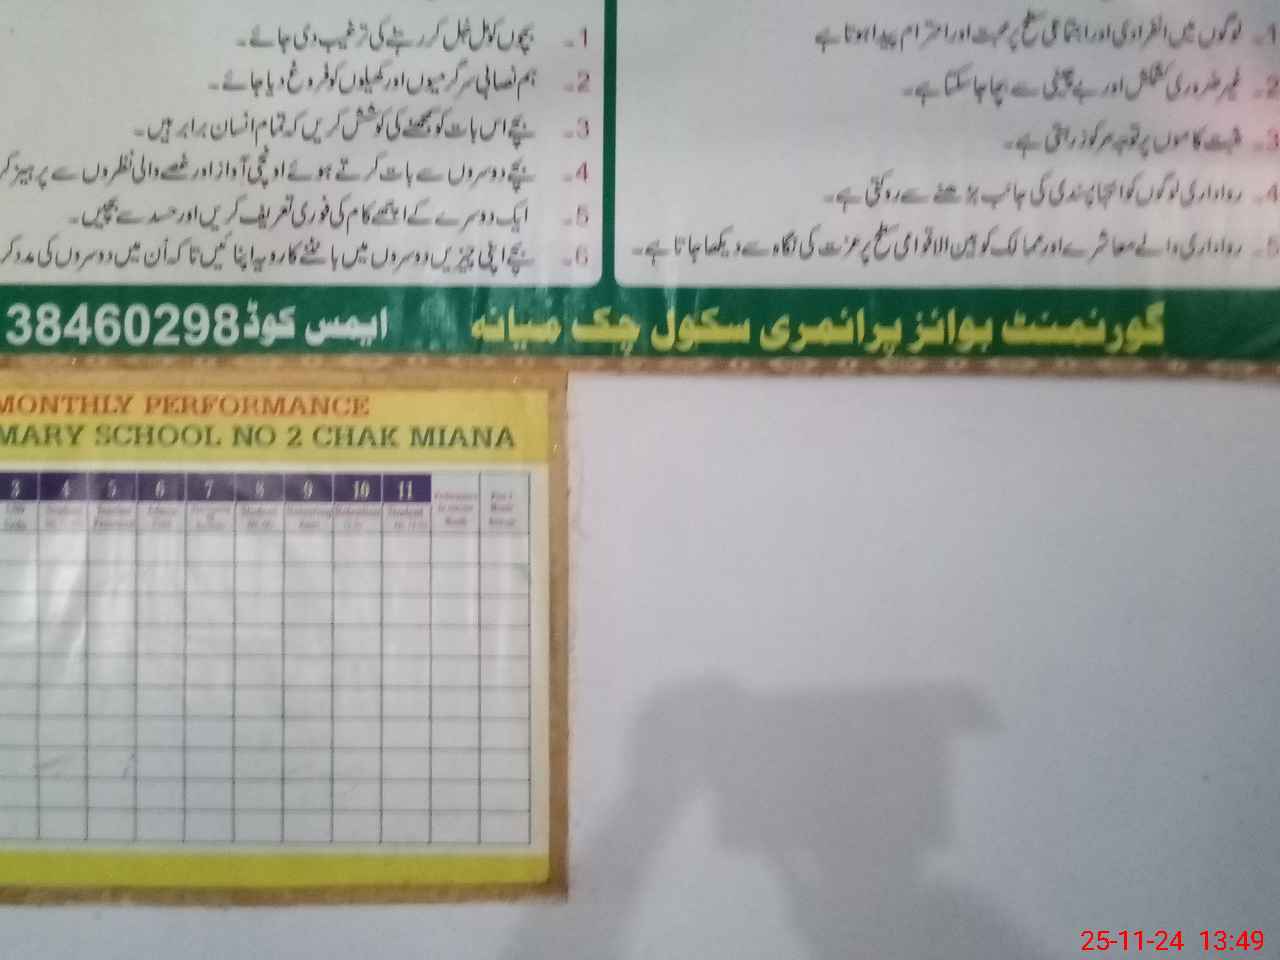 1۔ لوگوں میں انفرادی اور اجتماعی سطح پر محبت اور احترام پیدا ہوتا ہے
2۔ غیر ضروری کشمکش اور بے چینی سے بچا جا سکتا ہے۔
3۔ مثبت کاموں پر توجہ مرکوز رہتی ہے۔
4۔ رواداری لوگوں کو انتہا پسندی کی جانب بڑھنے سے روکتی ہے۔
5۔ رواداری والے معاشرے اور ممالک کو بین الاقوامی سطح پر عزت کی نگاہ سے دیکھا جاتا ہے۔
1۔ بچوں کو مل جل کر رہنے کی ترغیب دی جائے۔
2۔ ہم نصابی سرگرمیوں اور کھیلوں کو فروغ دیا جائے۔
3۔ بچے اس بات کو سمجھنے کی کوشش کریں کہ تمام انسان برابر ہیں۔
4۔ بچے دوسروں سے بات کرتے ہوئے اونچی آواز اور غصے والی نظروں سے پرہیز
5۔ ایک دوسرے کے اچھے کام کی فوری تعریف کریں اور حسد سے بچیں۔
6۔ بچے اپنی چیزیں دوسروں میں بانٹنے کا رویہ اپنائیں تاکہ اُن میں دوسروں کی مدد
گورنمنٹ بوائز پرائمری سکول چک میانہ ایمس کوڈ 38460298
MONTHLY PERFORMANCE
MARY SCHOOL NO 2 CHAK MIANA
3 4 5 6 7 8 9 10 11
25-11-24 13:49